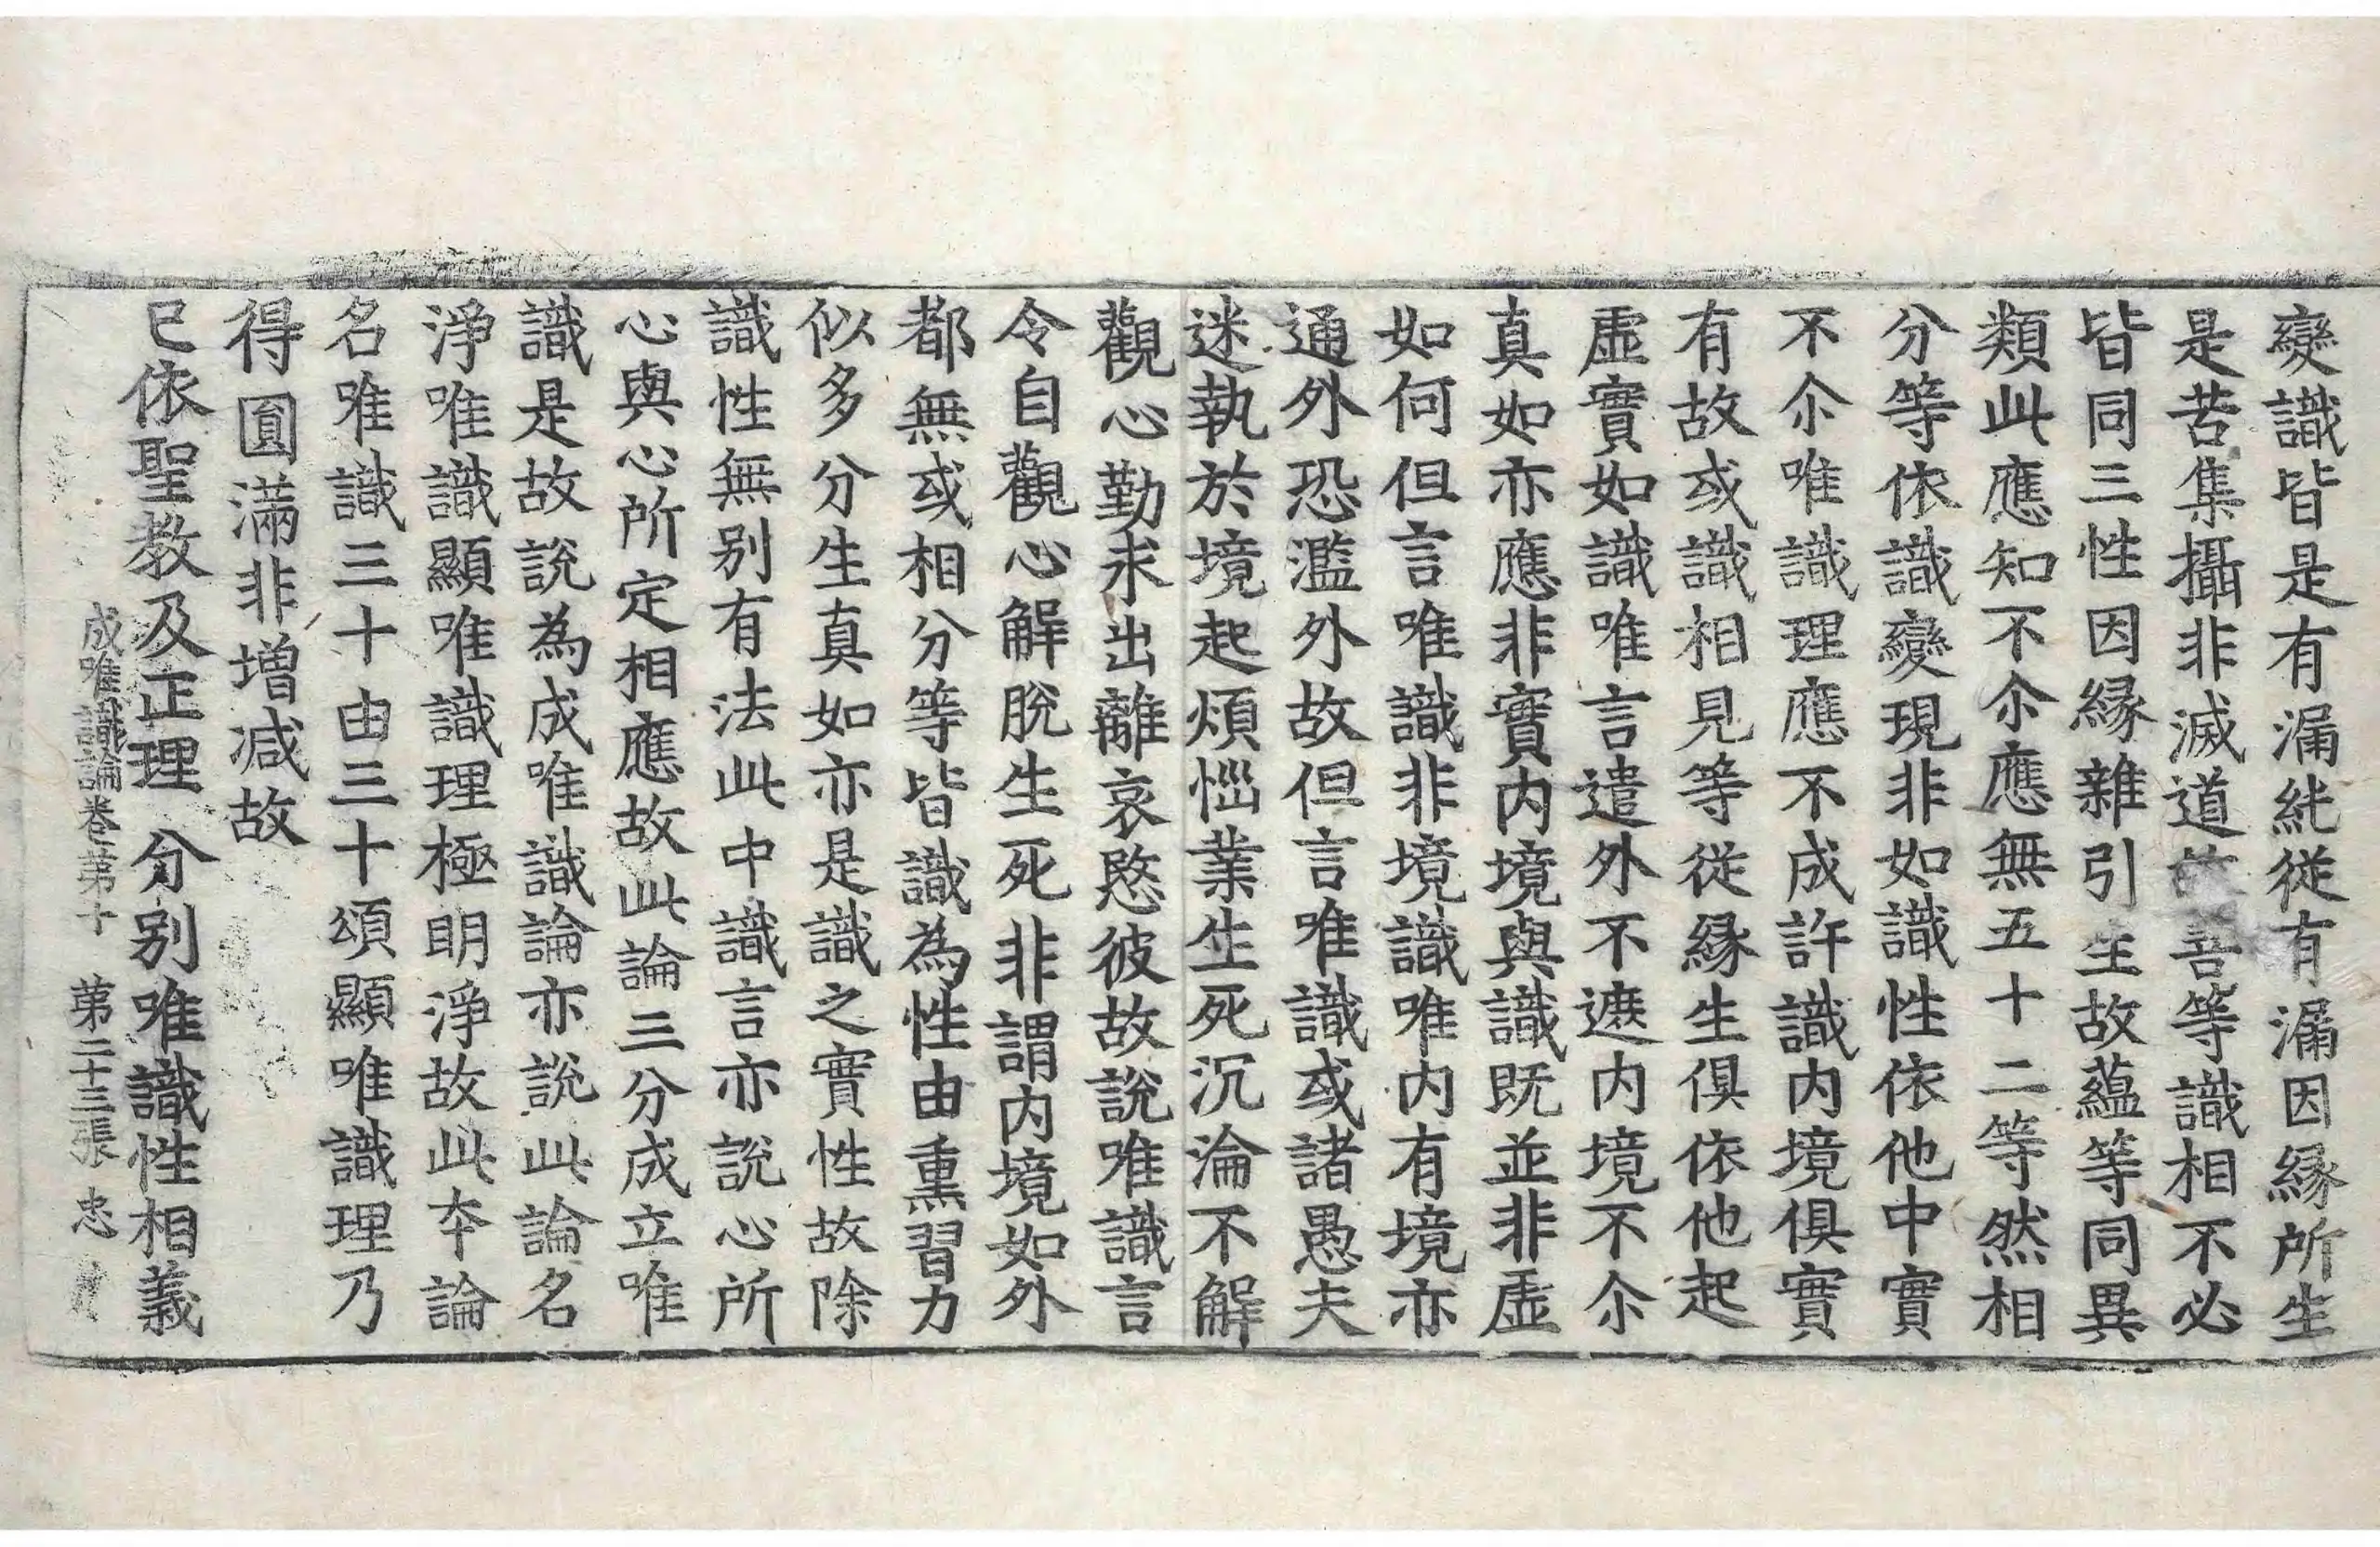 變識皆是有漏純從有漏因縁所生
是苦集攝非滅道故善等識相不必
皆同三性因縁雜引生故蘊等同異
類此應知不尒應無五十二等然相
分等依識變現非如識性依他中實
不尒唯識理應不成許識内境俱實
有故或識相見等從縁生俱依他起
虛實如識唯言遣外不遮内境不尒
真如亦應非實内境與識既並非虛
如何但言唯識非境識唯内有境亦
通外恐濫外故但言唯識或諸愚夫
迷執於境起煩惱業生死沉淪不解
觀心勤求出離哀愍彼故說唯識言
令自觀心解脫生死非謂内境如外
都無或相分等皆識為性由熏習力
似多分生真如亦是識之實性故除
識性無别有法此中識言亦說心所
心與心所定相應故此論三分成立唯
識是故說為成唯識論亦說此論名
淨唯識顯唯識理極明淨故此本論
名唯識三十由三十頌顯唯識理乃
得圓滿非增減故
已依聖教及正理 分别唯識性相義
成唯識論卷第十 第二十三張 忠